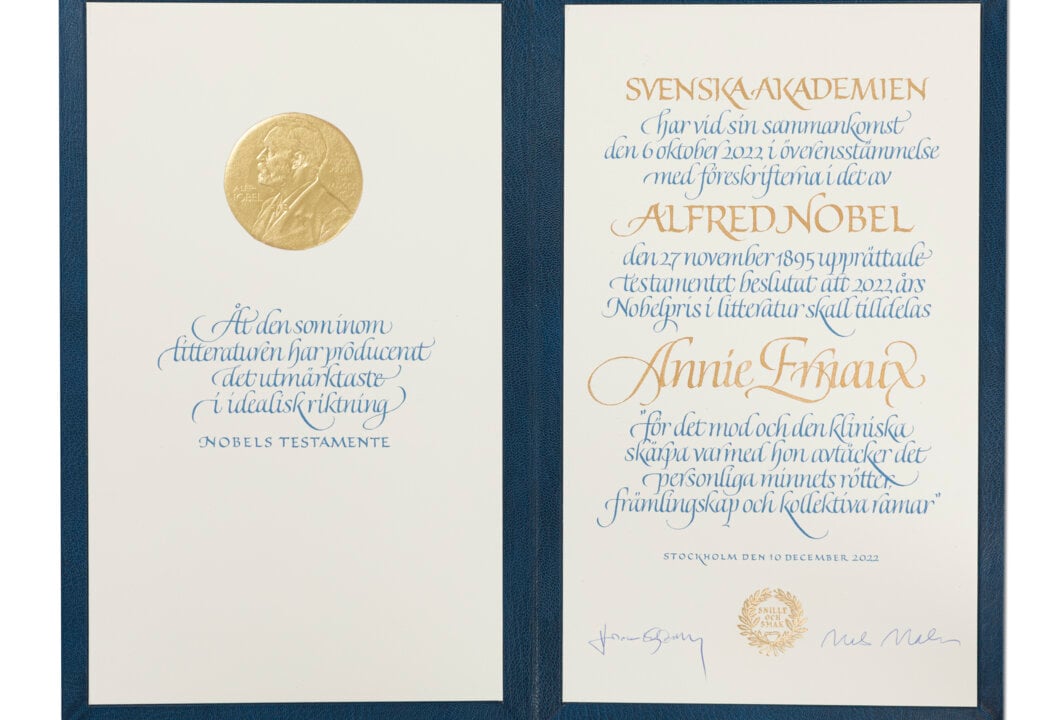 ALFR·
NOBEL
Åt den som inom
litteraturen har producerat
det utmärktaste
i idealisk riktning
NOBELS TESTAMENTE
SVENSKA AKADEMIEN
har vid sin sammankomst
den 6 oktober 2022 i överensstämmelse
med föreskrifterna i det av
ALFRED NOBEL
den 27 november 1895 upprättade
testamentet beslutat att 2022 års
Nobelpris i litteratur skall tilldelas
Annie Ernaux
"för det mod och den kliniska
skärpa varmed hon avtäcker det
personliga minnets rötter,
främlingskap och kollektiva ramar"
STOCKHOLM DEN 10 DECEMBER 2022
SNILLE
OCH
SMAK